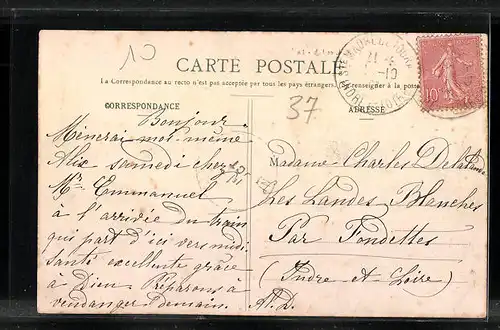 10
CARTE POSTALE
La Correspondance au recto n'est pas acceptée par tous les pays étrangers. Renseigner à la poste
37
CORRESPONDANCE
ADRESSE
10
Bonjour
Mènerai moi-même
Alix samedi chez
Mr Emmanuel
à l'arrivée du train
qui part d'ici vers midi
Santé excellente grâce
à Dieu. Préparons à
vendanger demain.
Madame Charles
Les Landes Blanches
Par Fondettes
(Indre et Loire)
A.D.